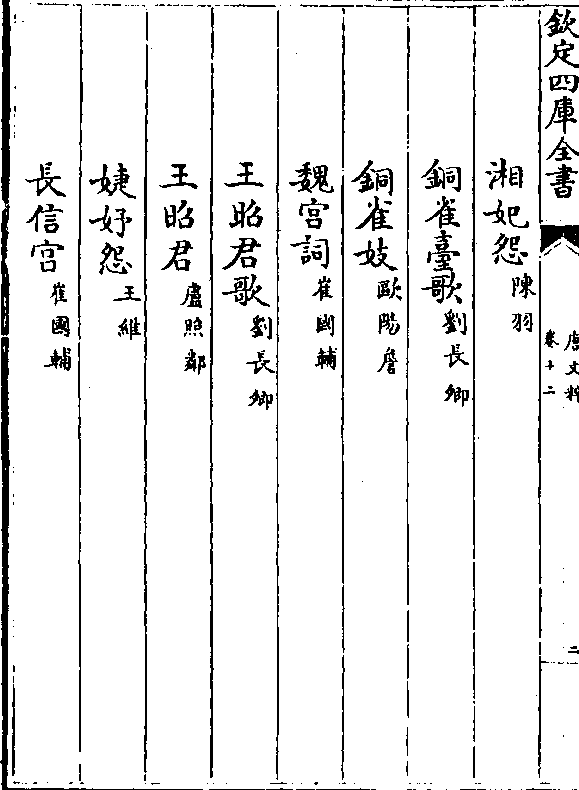 欽定四庫全書
唐文粹
卷十二
二
湘妃怨陳羽
銅雀臺歌劉長卿
銅雀妓歐陽詹
魏宫詞崔國輔
王昭君歌劉長卿
王昭君盧照鄰
婕妤怨王維
長信宫崔國輔